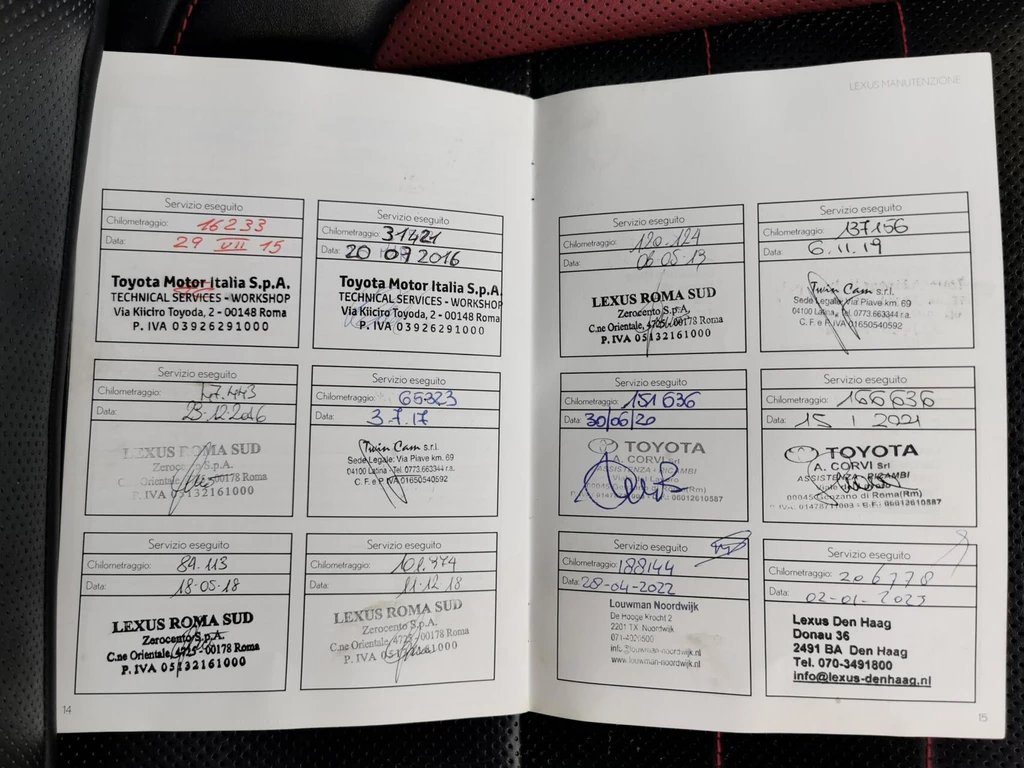 LEXUS MANUTENZIONE
Servizio eseguito
Chilometraggio: 16233
Data: 29 VII 15
Toyota Motor Italia S.p.A.
TECHNICAL SERVICES - WORKSHOP
Via Kiiciro Toyoda, 2 - 00148 Roma
P. IVA 03926291000
Servizio eseguito
Chilometraggio: 31421
Data: 20 07 2016
Toyota Motor Italia S.p.A.
TECHNICAL SERVICES - WORKSHOP
Via Kiiciro Toyoda, 2 - 00148 Roma
P. IVA 03926291000
Servizio eseguito
Chilometraggio: 47.443
Data: 23.12.2016
LEXUS ROMA SUD
Zerocento S.p.A.
C.ne Orientale, 4725 - 00178 Roma
P. IVA 05132161000
Servizio eseguito
Chilometraggio: 65323
Data: 3.7.17
Twin Cam s.r.l.
Sede Legale: Via Piave km. 69
04100 Latina - Tel. 0773.663344 r.a.
C. F. e P. IVA 01650540592
Servizio eseguito
Chilometraggio: 84.113
Data: 18-05-18
LEXUS ROMA SUD
Zerocento S.p.A.
C.ne Orientale, 4725 - 00178 Roma
P. IVA 05132161000
Servizio eseguito
Chilometraggio:
Data: 11-12-18
LEXUS ROMA SUD
Zerocento S.p.A.
C.ne Orientale, 4725 - 00178 Roma
P. IVA 05132161000
14
Servizio eseguito
Chilometraggio: 120.124
Data: 06-05-19
LEXUS ROMA SUD
Zerocento S.p.A.
C.ne Orientale, 4725 - 00178 Roma
P. IVA 05132161000
Servizio eseguito
Chilometraggio: 137156
Data: 6.11.19
Twin Cam s.r.l.
Sede Legale: Via Piave km. 69
04100 Latina - Tel. 0773.663344 r.a.
C. F. e P. IVA 01650540592
Servizio eseguito
Chilometraggio: 151636
Data: 30/06/20
TOYOTA
A. CORVI Srl
ASSISTENZA - RICAMBI
00045 Genzano di Roma(Rm)
P. IVA. 01478711003 - C.F.: 06012610587
Servizio eseguito
Chilometraggio: 166636
Data: 15 1 2021
TOYOTA
A. CORVI Srl
ASSISTENZA - RICAMBI
00045 Genzano di Roma(Rm)
P. IVA. 01478711003 - C.F.: 06012610587
Servizio eseguito
Chilometraggio: 188144
Data: 28-04-2022
Louwman Noordwijk
De Hooge Krocht 2
2201 TX Noordwijk
info@louwman-noordwijk.nl
www.louwman-noordwijk.nl
Servizio eseguito
Chilometraggio: 206778
Data: 02-01-2023
Lexus Den Haag
Donau 36
2491 BA Den Haag
Tel. 070-3491800
info@lexus-denhaag.nl
15